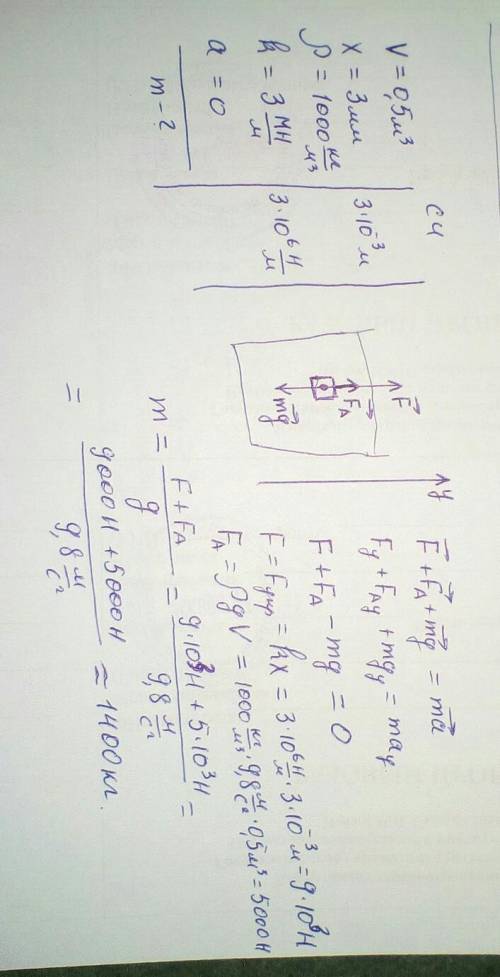 V = 0,5 м³
x = 3 мм
ρ = 1000 кг/м³
k = 3 МН/м
a = 0
m - ?
СИ
3·10⁻³ м
3·10⁶ Н/м
y
F⃗
F⃗A
mg⃗
F⃗ + F⃗A + mg⃗ = ma⃗
Fy + FAy + mgy = may
F + FA - mg = 0
F = Fупр = kx = 3·10⁶ Н/м · 3·10⁻³ м = 9·10³ Н
FA = ρgV = 1000 кг/м³ · 9,8 м/с² · 0,5 м³ = 5000 Н
m = (F + FA)/g = (9·10³ Н + 5·10³ Н)/(9,8 м/с²) =
= (9000 Н + 5000 Н)/(9,8 м/с²) ≈ 1400 кг.